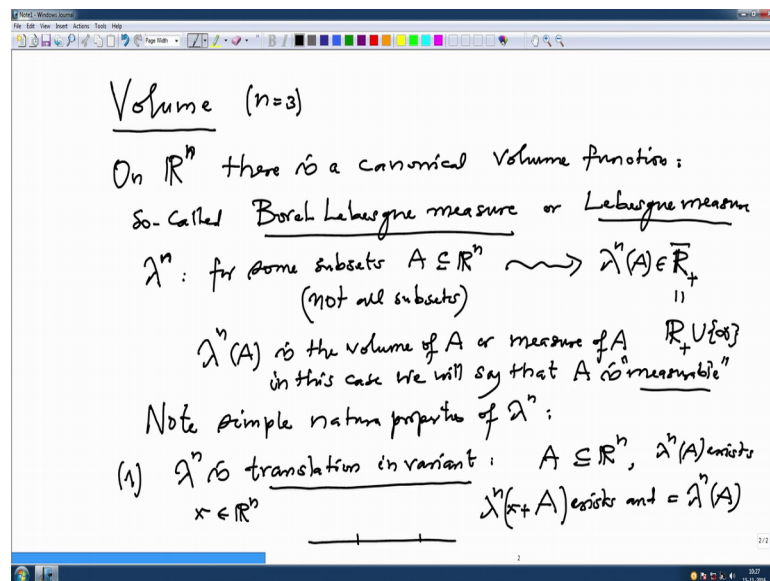 Note1 - Windows Journal
File Edit View Insert Actions Tools Help
Page Width
Volume (n=3)
On ℝⁿ there is a canonical volume function:
So-called Borel Lebesgue measure or Lebesgue measure
λⁿ: for some subsets A ⊆ ℝⁿ ⟿ λⁿ(A) ∈ ℝ̅₊
(not all subsets) =
λⁿ(A) is the volume of A or measure of A ℝ₊∪{∞}
in this case we will say that A is "measurable"
Note simple natural properties of λⁿ:
(1) λⁿ is translation invariant: A ⊆ ℝⁿ, λⁿ(A) exists
x ∈ ℝⁿ λⁿ(x+A) exists and = λⁿ(A)
2/2
2
10:27